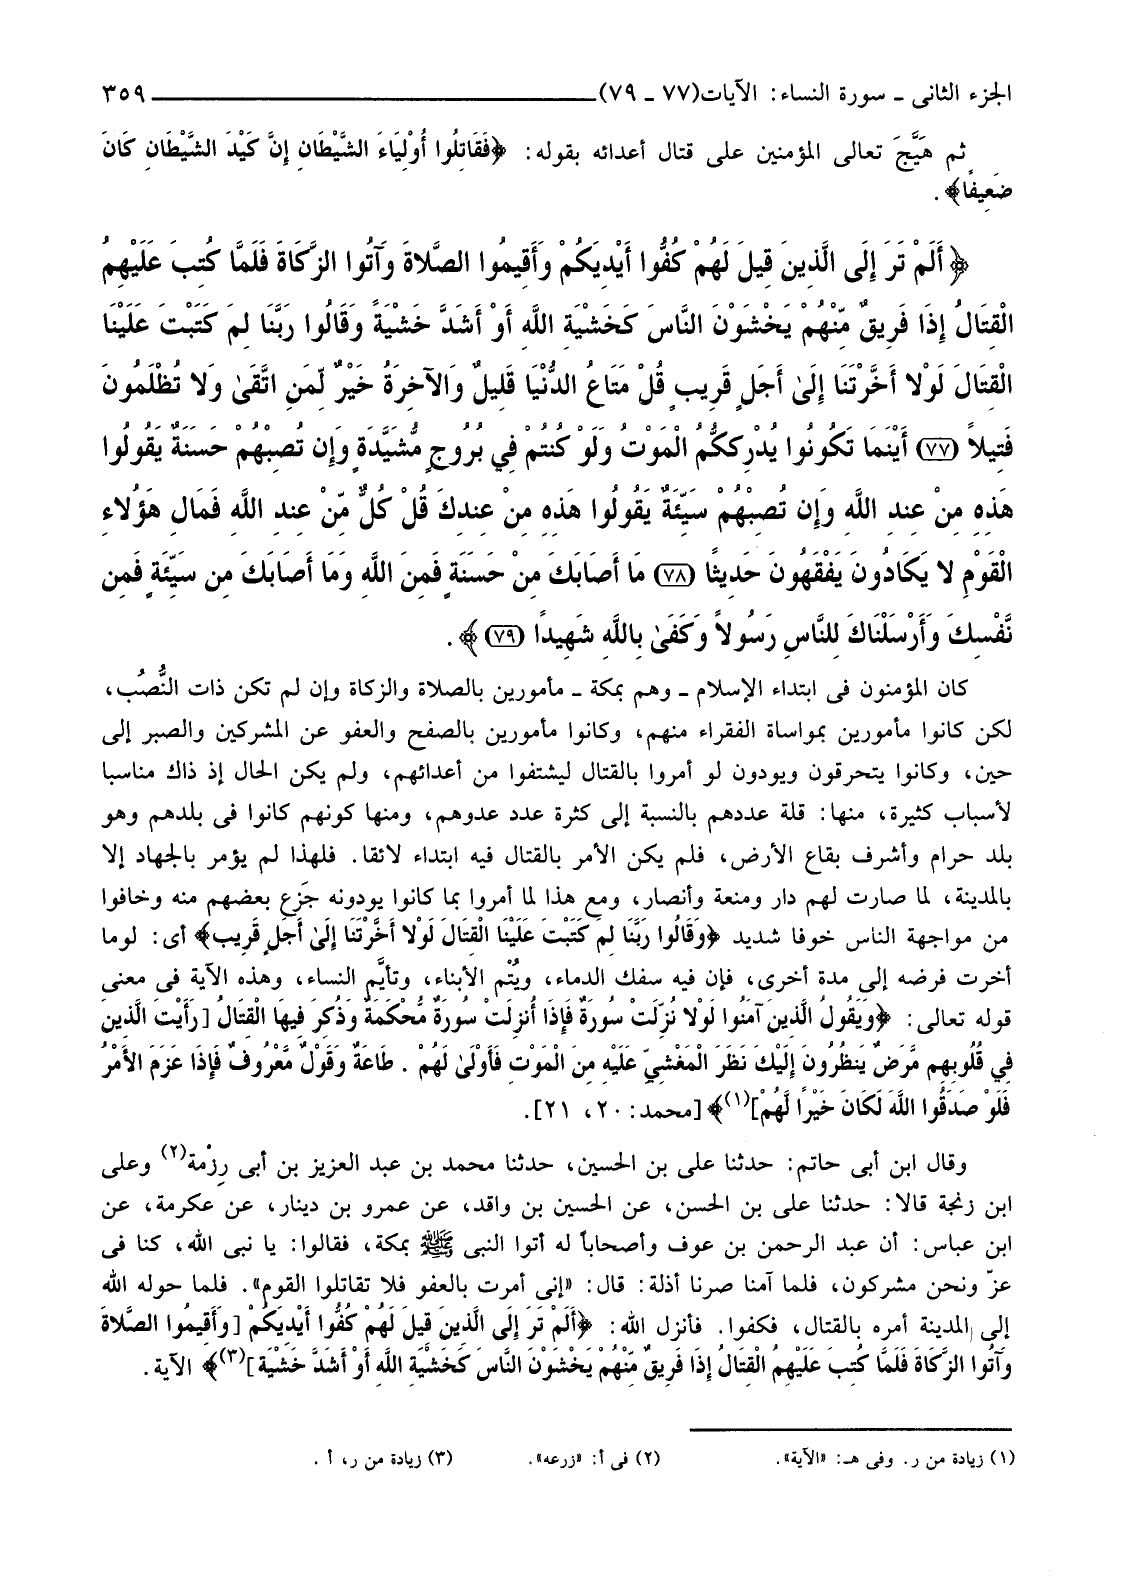 الجزء الثانى ـ سورة النساء: الآيات(٧٧ ـ ٧٩) ٣٥٩
ثم هَيَّجَ تعالى المؤمنين على قتال أعدائه بقوله: ﴿فَقَاتِلُوا أَوْلِيَاءَ الشَّيْطَانِ إِنَّ كَيْدَ الشَّيْطَانِ كَانَ
ضَعِيفًا﴾ .
﴿ أَلَمْ تَرَ إِلَى الَّذِينَ قِيلَ لَهُمْ كُفُّوا أَيْدِيَكُمْ وَأَقِيمُوا الصَّلاةَ وَآتُوا الزَّكَاةَ فَلَمَّا كُتِبَ عَلَيْهِمُ
الْقِتَالُ إِذَا فَرِيقٌ مِّنْهُمْ يَخْشَوْنَ النَّاسَ كَخَشْيَةِ اللَّهِ أَوْ أَشَدَّ خَشْيَةً وَقَالُوا رَبَّنَا لِمَ كَتَبْتَ عَلَيْنَا
الْقِتَالَ لَوْلا أَخَّرْتَنَا إِلَىٰ أَجَلٍ قَرِيبٍ قُلْ مَتَاعُ الدُّنْيَا قَلِيلٌ وَالآخِرَةُ خَيْرٌ لِّمَنِ اتَّقَىٰ وَلا تُظْلَمُونَ
فَتِيلاً (٧٧) أَيْنَمَا تَكُونُوا يُدْرِككُّمُ الْمَوْتُ وَلَوْ كُنتُمْ فِي بُرُوجٍ مُّشَيَّدَةٍ وَإِن تُصِبْهُمْ حَسَنَةٌ يَقُولُوا
هَذِهِ مِنْ عِندِ اللَّهِ وَإِن تُصِبْهُمْ سَيِّئَةٌ يَقُولُوا هَذِهِ مِنْ عِندِكَ قُلْ كُلٌّ مِّنْ عِندِ اللَّهِ فَمَالِ هَؤُلاءِ
الْقَوْمِ لا يَكَادُونَ يَفْقَهُونَ حَدِيثًا (٧٨) مَا أَصَابَكَ مِنْ حَسَنَةٍ فَمِنَ اللَّهِ وَمَا أَصَابَكَ مِن سَيِّئَةٍ فَمِن
نَّفْسِكَ وَأَرْسَلْنَاكَ لِلنَّاسِ رَسُولاً وَكَفَىٰ بِاللَّهِ شَهِيدًا (٧٩) ﴾ .
كان المؤمنون فى ابتداء الإسلام ـ وهم بمكة ـ مأمورين بالصلاة والزكاة وإن لم تكن ذات النُّصُب،
لكن كانوا مأمورين بمواساة الفقراء منهم، وكانوا مأمورين بالصفح والعفو عن المشركين والصبر إلى
حين، وكانوا يتحرقون ويودون لو أمروا بالقتال ليشتفوا من أعدائهم، ولم يكن الحال إذ ذاك مناسبا
لأسباب كثيرة، منها: قلة عددهم بالنسبة إلى كثرة عدد عدوهم، ومنها كونهم كانوا فى بلدهم وهو
بلد حرام وأشرف بقاع الأرض، فلم يكن الأمر بالقتال فيه ابتداء لائقا. فلهذا لم يؤمر بالجهاد إلا
بالمدينة، لما صارت لهم دار ومنعة وأنصار، ومع هذا لما أمروا بما كانوا يودونه جَزع بعضهم منه وخافوا
من مواجهة الناس خوفا شديد ﴿وَقَالُوا رَبَّنَا لِمَ كَتَبْتَ عَلَيْنَا الْقِتَالَ لَوْلا أَخَّرْتَنَا إِلَىٰ أَجَلٍ قَرِيبٍ﴾ أى: لوما
أخرت فرضه إلى مدة أخرى، فإن فيه سفك الدماء، ويُتْم الأبناء، وتأيُّم النساء، وهذه الآية فى معنى
قوله تعالى: ﴿وَيَقُولُ الَّذِينَ آمَنُوا لَوْلا نُزِّلَتْ سُورَةٌ فَإِذَا أُنزِلَتْ سُورَةٌ مُّحْكَمَةٌ وَذُكِرَ فِيهَا الْقِتَالُ [رَأَيْتَ الَّذِينَ
فِي قُلُوبِهِم مَّرَضٌ يَنظُرُونَ إِلَيْكَ نَظَرَ الْمَغْشِيِّ عَلَيْهِ مِنَ الْمَوْتِ فَأَوْلَىٰ لَهُمْ . طَاعَةٌ وَقَوْلٌ مَّعْرُوفٌ فَإِذَا عَزَمَ الأَمْرُ
فَلَوْ صَدَقُوا اللَّهَ لَكَانَ خَيْرًا لَّهُمْ](١)﴾ [محمد: ٢٠، ٢١].
وقال ابن أبى حاتم: حدثنا على بن الحسين، حدثنا محمد بن عبد العزيز بن أبى رِزْمة(٢) وعلى
ابن زنجة قالا: حدثنا على بن الحسن، عن الحسين بن واقد، عن عمرو بن دينار، عن عكرمة، عن
ابن عباس: أن عبد الرحمن بن عوف وأصحاباً له أتوا النبى ﷺ بمكة، فقالوا: يا نبى الله، كنا فى
عزّ ونحن مشركون، فلما آمنا صرنا أذلة: قال: «إنى أمرت بالعفو فلا تقاتلوا القوم». فلما حوله الله
إلى المدينة أمره بالقتال، فكفوا. فأنزل الله: ﴿أَلَمْ تَرَ إِلَى الَّذِينَ قِيلَ لَهُمْ كُفُّوا أَيْدِيَكُمْ [وَأَقِيمُوا الصَّلاةَ
وَآتُوا الزَّكَاةَ فَلَمَّا كُتِبَ عَلَيْهِمُ الْقِتَالُ إِذَا فَرِيقٌ مِّنْهُمْ يَخْشَوْنَ النَّاسَ كَخَشْيَةِ اللَّهِ أَوْ أَشَدَّ خَشْيَةً](٣)﴾ الآية.
(١) زيادة من ر. وفى هـ: «الآية». (٢) فى أ: «زرعه». (٣) زيادة من ر، أ .